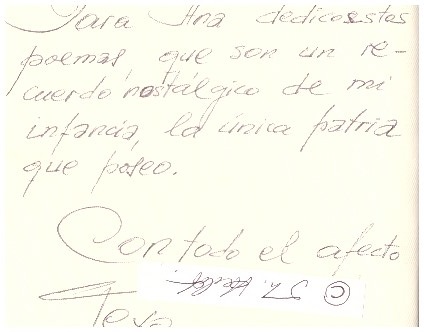 Para Ana dedico estos
poemas, que son un re-
cuerdo nostálgico de mi
infancia, la única patria
que poseo.
Con todo el afecto